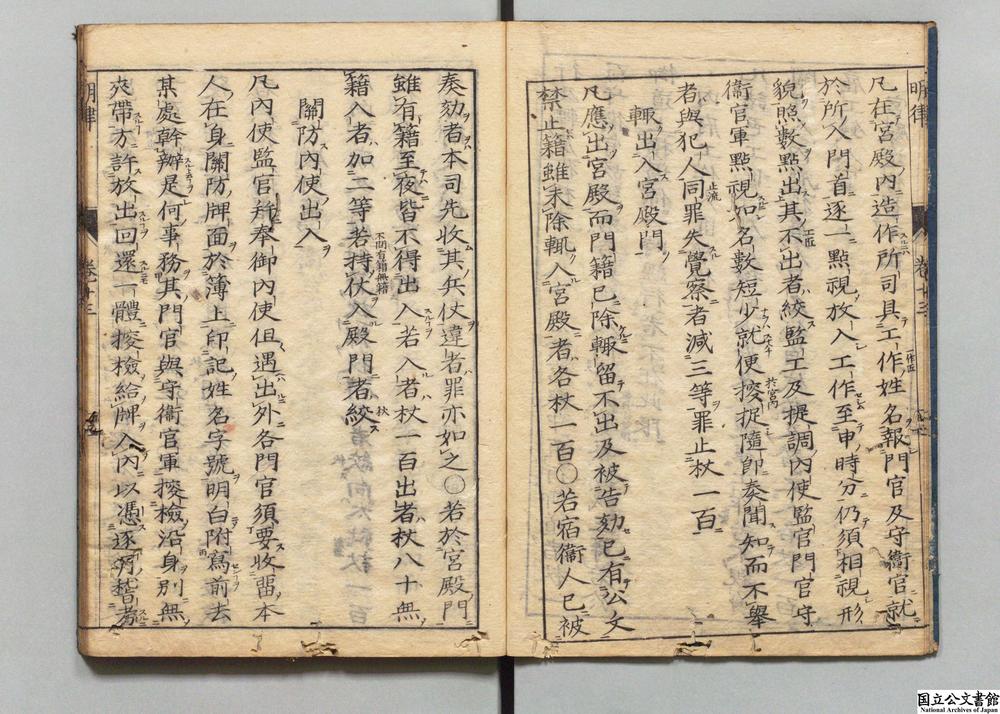 明律
卷十三
凡在宮殿內造作所司具工作姓名報門官及守衞官就
於所入門首逐一點視放入工作至申時分仍須相視形
貌照數點出其不出者絞監工及提調內使監官門官守
衞官軍點視如名數短少就便搜捉隨卽奏聞知而不舉
者與犯人同罪失覺察者減三等罪止杖一百
輙出入宮殿門
凡應出宮殿而門籍已除輙留不出及被告劾已有公文
禁止籍雖未除輙入宮殿者各杖一百〇若宿衞人已被
奏劾者本司先收其兵仗違者罪亦如之〇若於宮殿門
雖有籍至夜皆不得出入若入者杖一百出者杖八十無
籍入者加二等若持仗入殿門者絞
關防內使出入
凡內使監官幷奉御內使但遇出外各門官須要收畱本
人在身關防牌面於簿上印記姓名字號明白附寫前去
某處幹辦是何事務其門官與守衞官軍搜檢沿身別無
夾帶方許放出回還一體搜檢給牌入內以憑逐月稽考
明律
卷十三
国立公文書館
National Archives of Japan